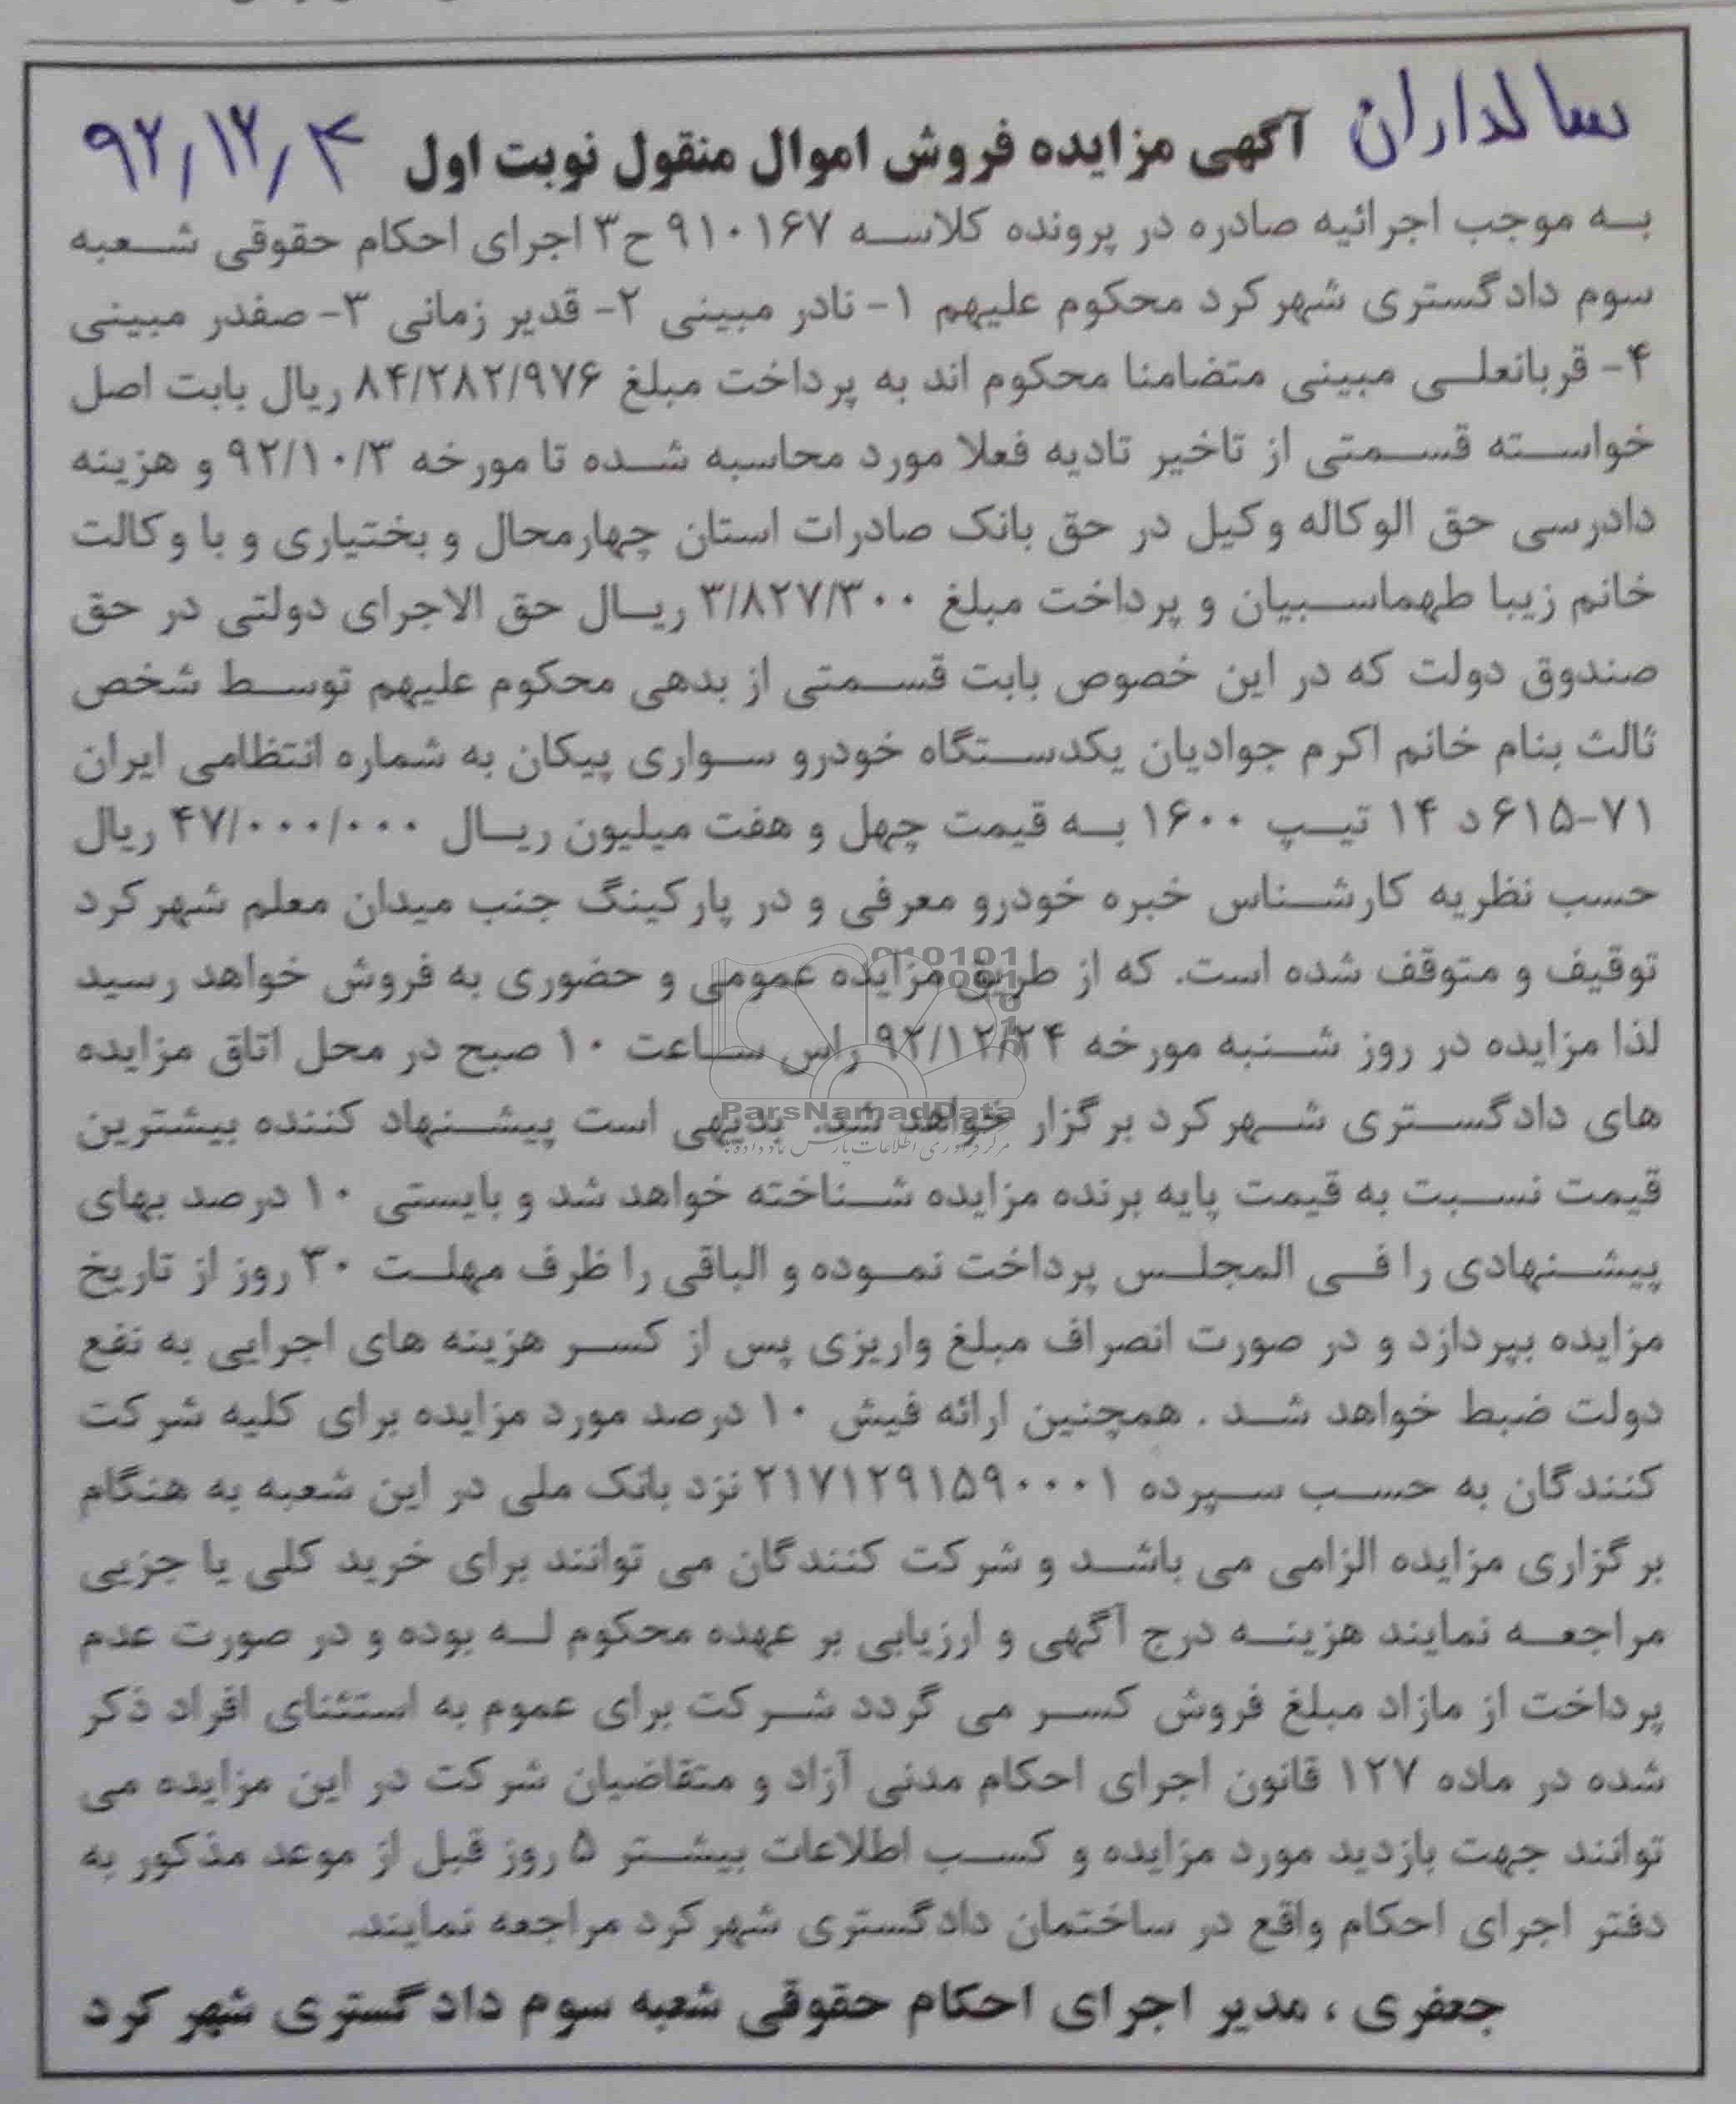 سالداران
آگهی مزایده فروش اموال منقول نوبت اول
۹۲٫۱۲٫۴
به موجب اجرائیه صادره در پرونده کلاسه ۹۱۰۱۶۷ ح۳ اجرای احکام حقوقی شعبه
سوم دادگستری شهرکرد محکوم علیهم ۱- نادر مبینی ۲- قدیر زمانی ۳- صفدر مبینی
۴- قربانعلی مبینی متضامنا محکوم اند به پرداخت مبلغ ۸۴/۲۸۲/۹۷۶ ریال بابت اصل
خواسته قسمتی از تاخیر تادیه فعلا مورد محاسبه شده تا مورخه ۹۲/۱۰/۳ و هزینه
دادرسی حق الوکاله وکیل در حق بانک صادرات استان چهارمحال و بختیاری و با وکالت
خانم زیبا طهماسبیان و پرداخت مبلغ ۳/۸۲۷/۳۰۰ ریال حق الاجرای دولتی در حق
صندوق دولت که در این خصوص بابت قسمتی از بدهی محکوم علیهم توسط شخص
ثالث بنام خانم اکرم جوادیان یکدستگاه خودرو سواری پیکان به شماره انتظامی ایران
۷۱-۶۱۵ د ۱۴ تیپ ۱۶۰۰ به قیمت چهل و هفت میلیون ریال ۴۷/۰۰۰/۰۰۰ ریال
حسب نظریه کارشناس خبره خودرو معرفی و در پارکینگ جنب میدان معلم شهرکرد
توقیف و متوقف شده است. که از طریق مزایده عمومی و حضوری به فروش خواهد رسید
لذا مزایده در روز شنبه مورخه ۹۲/۱۲/۲۴ راس ساعت ۱۰ صبح در محل اتاق مزایده
های دادگستری شهرکرد برگزار خواهد شد. بدیهی است پیشنهاد کننده بیشترین
قیمت نسبت به قیمت پایه برنده مزایده شناخته خواهد شد و بایستی ۱۰ درصد بهای
پیشنهادی را فی المجلس پرداخت نموده و الباقی را ظرف مهلت ۳۰ روز از تاریخ
مزایده بپردازد و در صورت انصراف مبلغ واریزی پس از کسر هزینه های اجرایی به نفع
دولت ضبط خواهد شد . همچنین ارائه فیش ۱۰ درصد مورد مزایده برای کلیه شرکت
کنندگان به حسب سپرده ۲۱۷۱۲۹۱۵۹۰۰۰۱ نزد بانک ملی در این شعبه به هنگام
برگزاری مزایده الزامی می باشد و شرکت کنندگان می توانند برای خرید کلی یا جزیی
مراجعه نمایند هزینه درج آگهی و ارزیابی بر عهده محکوم له بوده و در صورت عدم
پرداخت از مازاد مبلغ فروش کسر می گردد شرکت برای عموم به استثنای افراد ذکر
شده در ماده ۱۲۷ قانون اجرای احکام مدنی آزاد و متقاضیان شرکت در این مزایده می
توانند جهت بازدید مورد مزایده و کسب اطلاعات بیشتر ۵ روز قبل از موعد مذکور به
دفتر اجرای احکام واقع در ساختمان دادگستری شهرکرد مراجعه نمایند.
جعفری ، مدیر اجرای احکام حقوقی شعبه سوم دادگستری شهرکرد
ParsNamadData